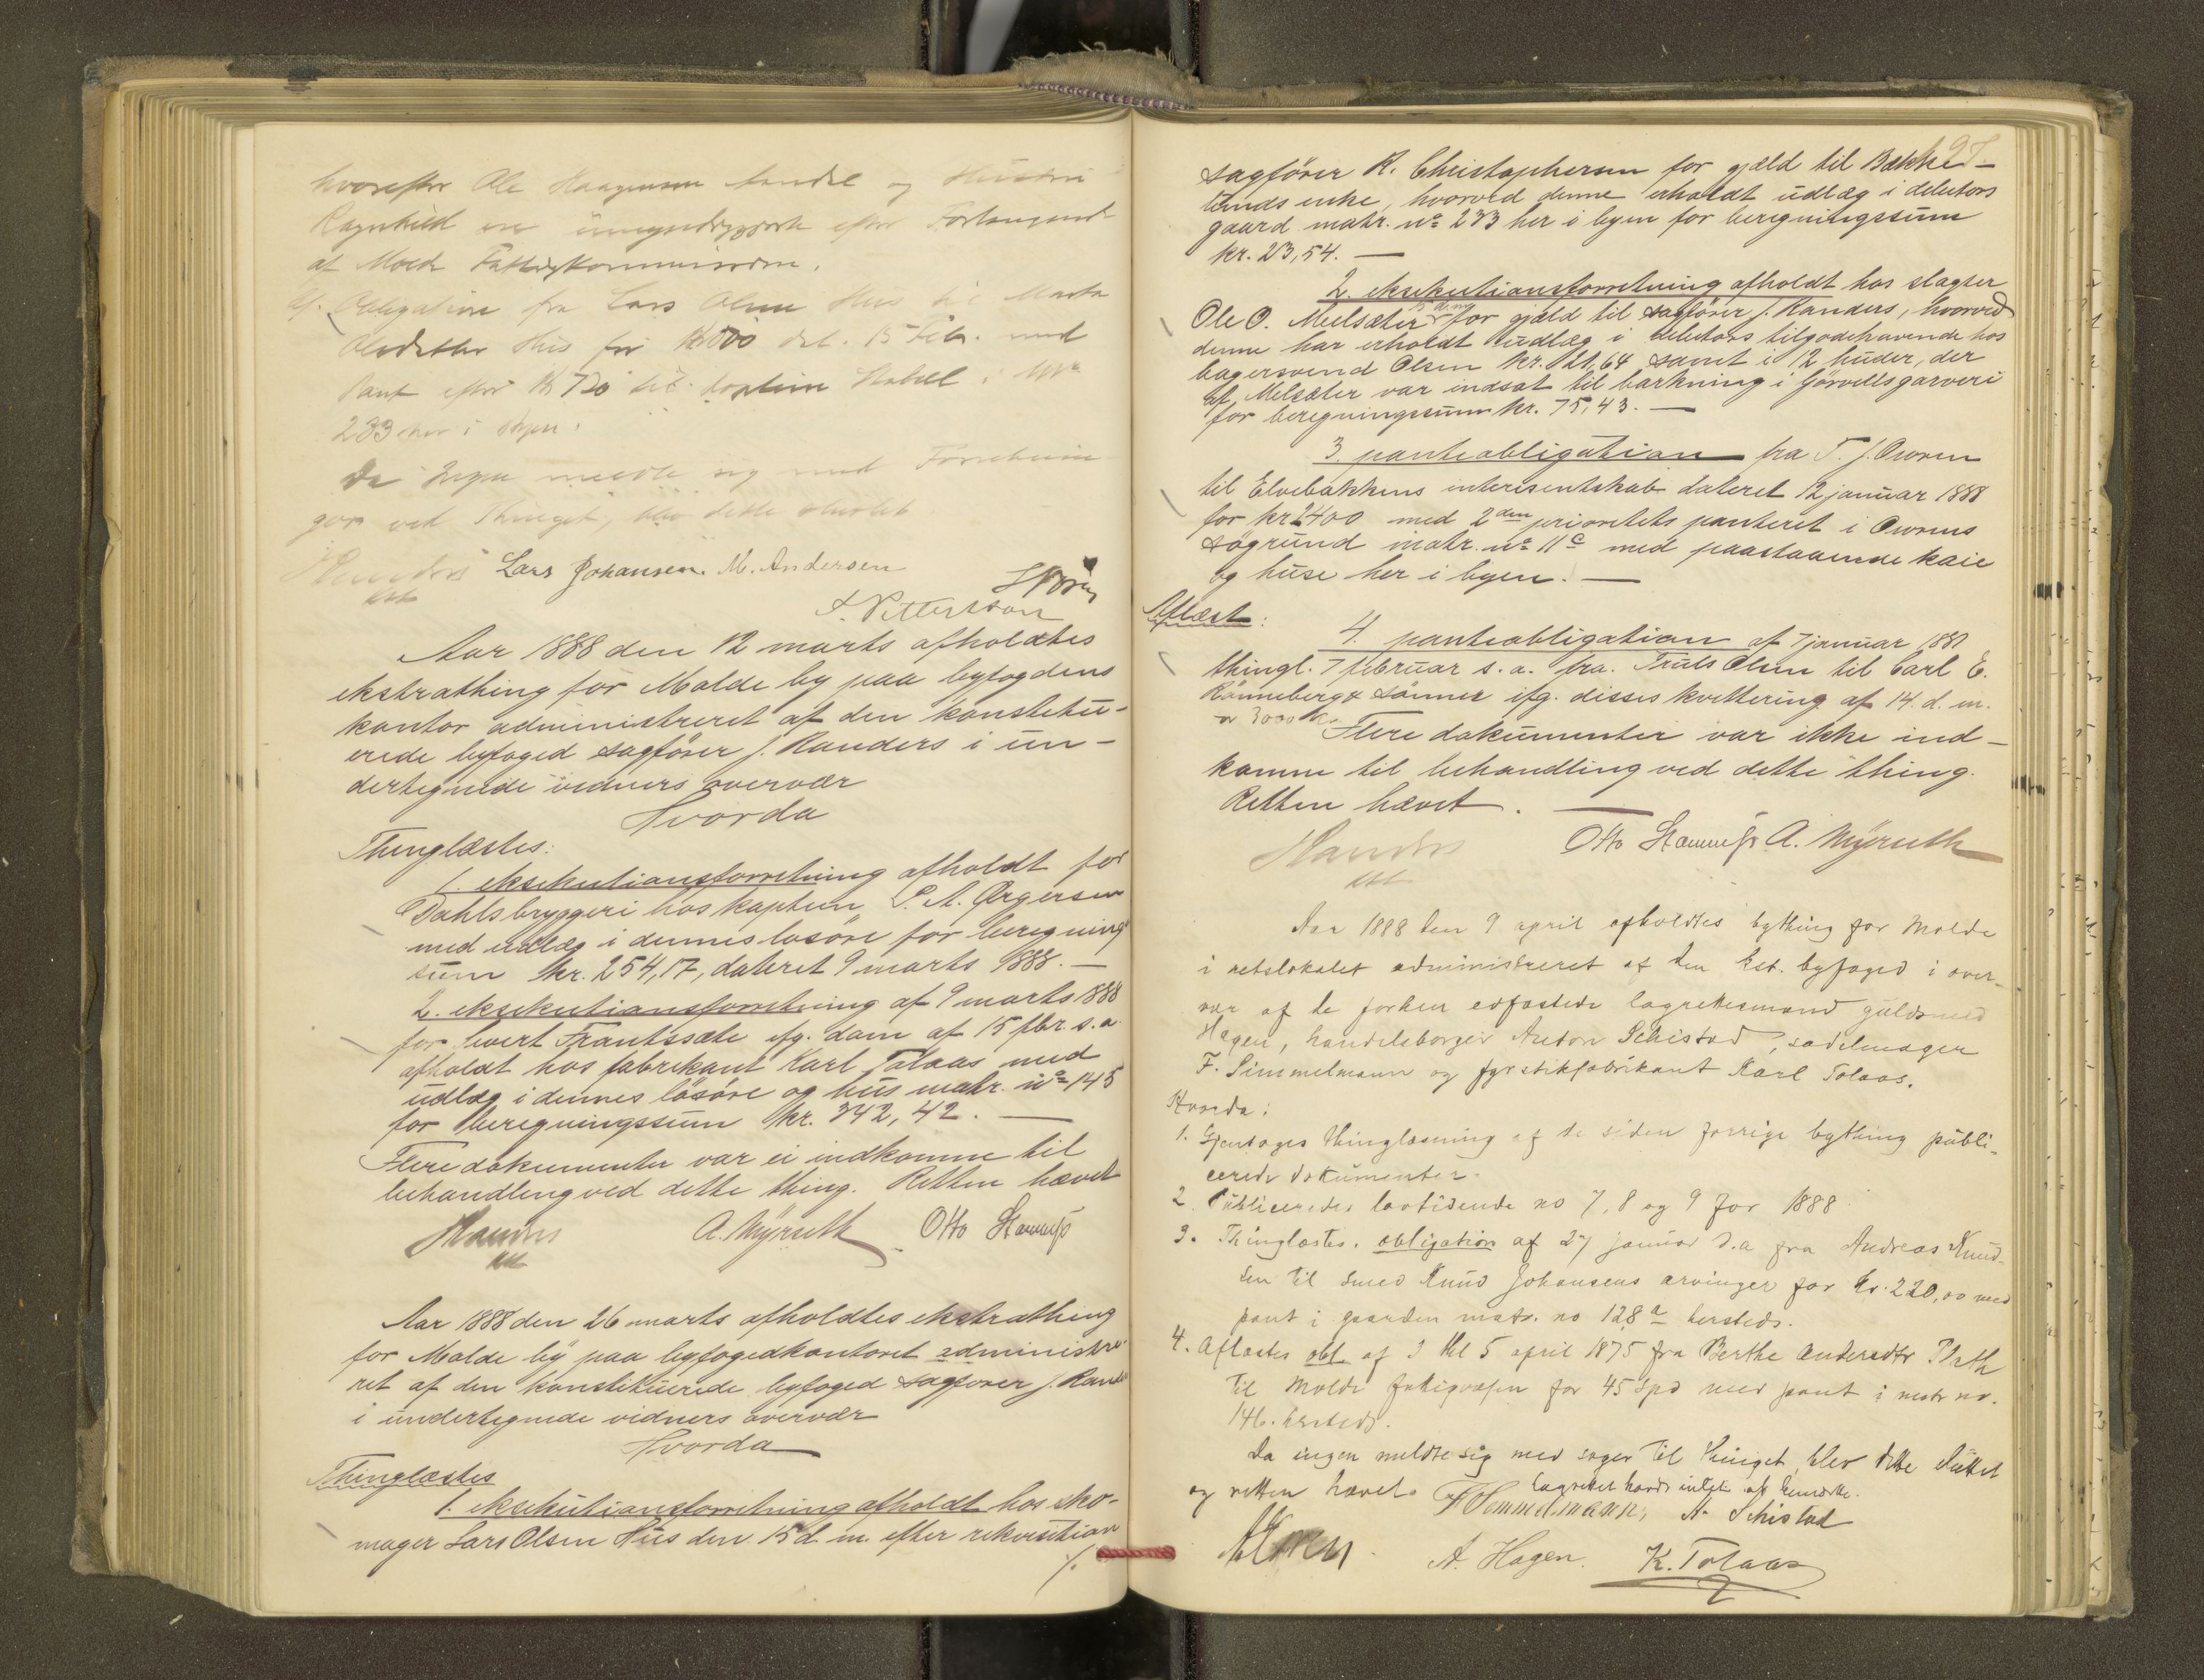 hvorefter Ole Haagensen og Hustru
Ragnhild en efter Forlangend
af Molde Fattigkommission.
Obligation fra Lars Olsen Hus til Marta
Olsdatter Hus for dat. 15 Feb. med
Pant efter til i
233 her i Byen.
Da Ingen meldte sig med
ved Thinget, blev dette sluttet.
Randers Lars Johansen. M. Andersen
kst
A. Pettersson
Aar 1888 den 12 marts afholdtes
ekstrathing for Molde by paa byfogdens
kontor administreret af den konstitu-
erede byfoged sagfører J. Randers i un-
dertegnede vidners overvær
Hvorda
Thinglæstes:
1. eksekutionsforretning afholdt for
Dahls bryggeri hos kaptein P. A. Ørgersen
med udlæg i dennes løsøre for beregning
sum kr. 254,17, dateret 9 marts 1888. —
2. eksekutionsforretning af 9 marts 1888
for Iwert Frantssæte ifg. dom af 15 fbr. s. a.
afholdt hos fabrikant Karl Tolaas med
udlæg i dennes løsøre og hus matr. no 145
for beregningssum kr. 342,42. —
Flere dokumenter var ei indkomne til
behandling ved dette thing. Retten hævet
Randers A. Myruth Otto
kst
Aar 1888 den 26 marts afholdtes ekstrathing
for Molde by paa byfogedkontoret administre
ret af den konstituerede byfoged sagfører J. Rand
i undertegnede vidners overvær
Hvorda
Thinglæstes
1. eksekutionsforretning afholdt hos sko-
mager Lars Olsen Hus den 15 d. m. efter rekvisition
/.
sagfører R. Christophersen for gjæld til Bække-
lands enke, hvorved denne erholdt udlæg i debitors
gaard matr. no 233 her i byen for beregningssum
kr. 23,54. —
2. eksekutionsforretning afholdt hos slagter
Ole O. Meelsæter for gjæld til sagfører J. Randers, hvorved
denne har erholdt udlæg i debitors tilgodehavende hos
bagersvend Olsen kr. 21,64 samt i 12 huder, der
af Melsæter var indsat til barkning i Gørvells garveri
for beregningssum kr. 75,43. —
3. panteobligation fra T. J. Owren
til Elvebakkens interisentskab dateret 12 januar 1888
for kr 2400 med 2den prioritets panteret i Owrens
søgrund matr. no 11c med paastaaende kaie
og huse her i byen. —
Aflæst:
4. panteobligation af 7 januar 1881
thingl. 7 februar s. a. fra Truls Olsen til Carl E.
Rønneberg & Sønner ifg. disses kvittering af 14. d. m.
3000 kr
Flere dokumenter var ikke ind-
komne til behandling ved dette thing.
Retten hævet. —
Randers Otto A. Myruth
kst
Aar 1888 den 9 april afholdtes bything for Molde
i retslokalet administreret af den kst. byfoged i over-
vær af de forhen edfæstede lagrettesmænd guldsmed
Hagen, handelsborger Anton Schistad, sadelmager
F. Simmelmann og fyrstikfabrikant Karl Tolaas.
Hvorda:
1. Gjentoges thinglæsning af de siden forrige bything publi-
cerede dokumenter.
2. Publiceredes lovtidende no 7, 8 og 9 for 1888
3. Thinglæstes. obligation af 27 januar d. a fra Andreas Knud-
sen til smed Knud Johansens arvinger for kr. 220,00 med
pant i gaarden matr. no 128a hersteds.
4. Aflæstes obl. af 3 thl 5 april 1875 fra Berthe Andersdtr Plath
til Molde fattigvæsen for 45 Spd med pant i matr no.
146. hersteds.
Da ingen meldte sig med sager til thinget, blev dette sluttet
og retten hævet. Lagrettet havde intet at bemærke.
F Simmelmann, A. Schistad
A. Hagen. K. Tolaas